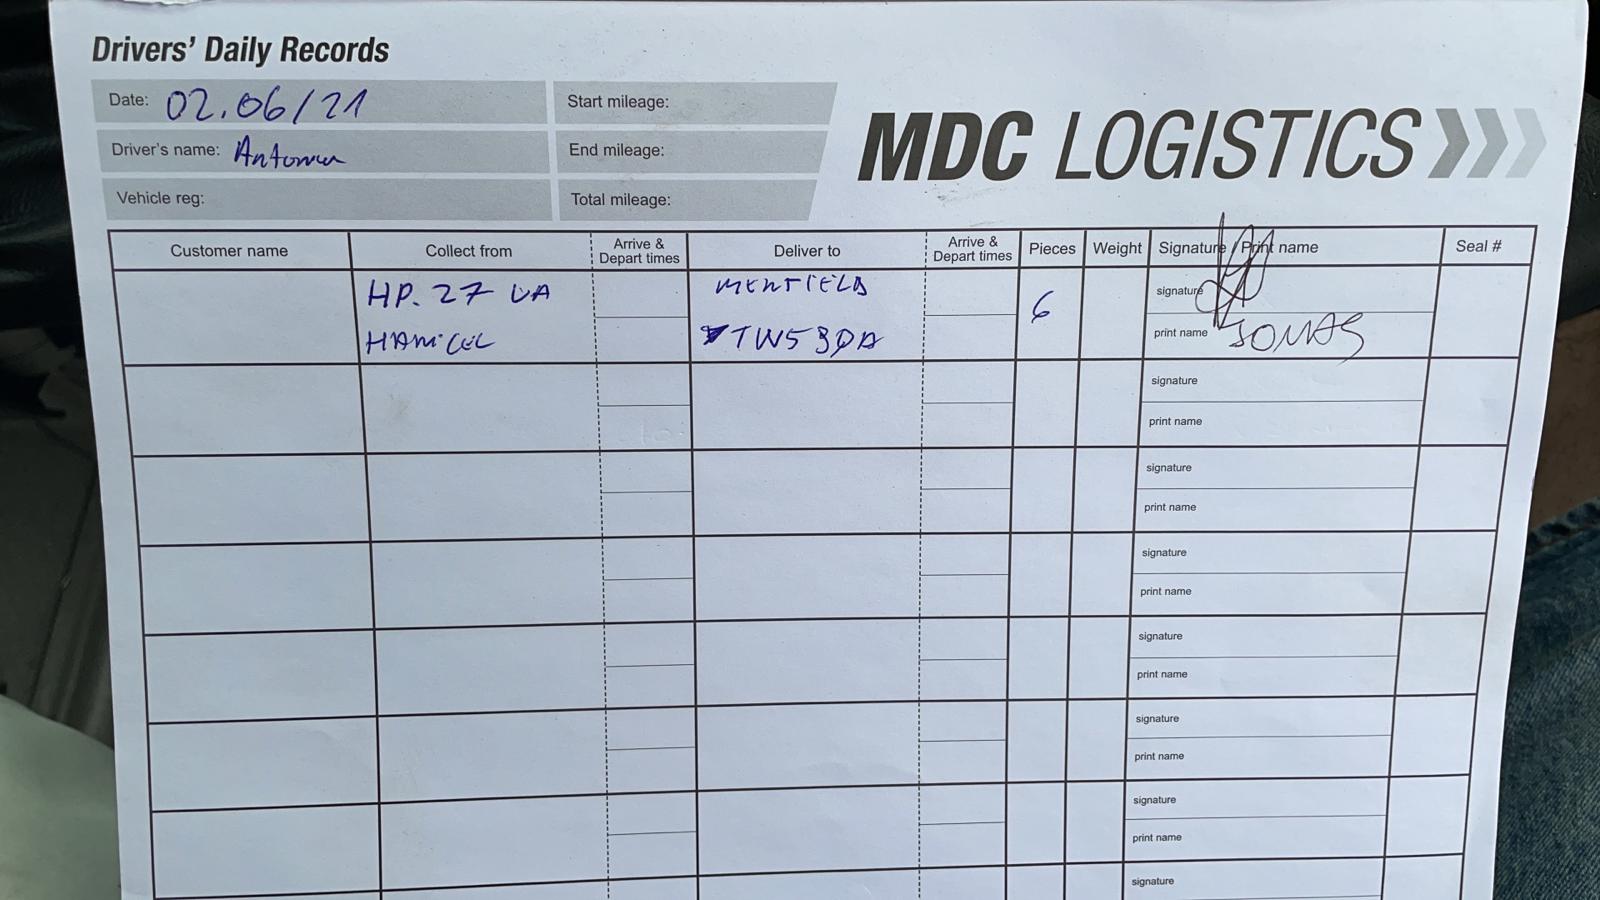 Drivers' Daily Records
Date: 02.06/21
Start mileage:
MDC LOGISTICS
Driver's name:
End mileage:
Vehicle reg:
Total mileage:
Customer name
Collect from
Arrive &
Depart times
Deliver to
Arrive &
Depart times
Pieces
Weight
Signature / Print name
Seal #
HP. 27 UA
6
signature
TW5 3DA
print name JONAS
signature
print name
signature
print name
signature
print name
signature
print name
signature
print name
signature
print name
signature